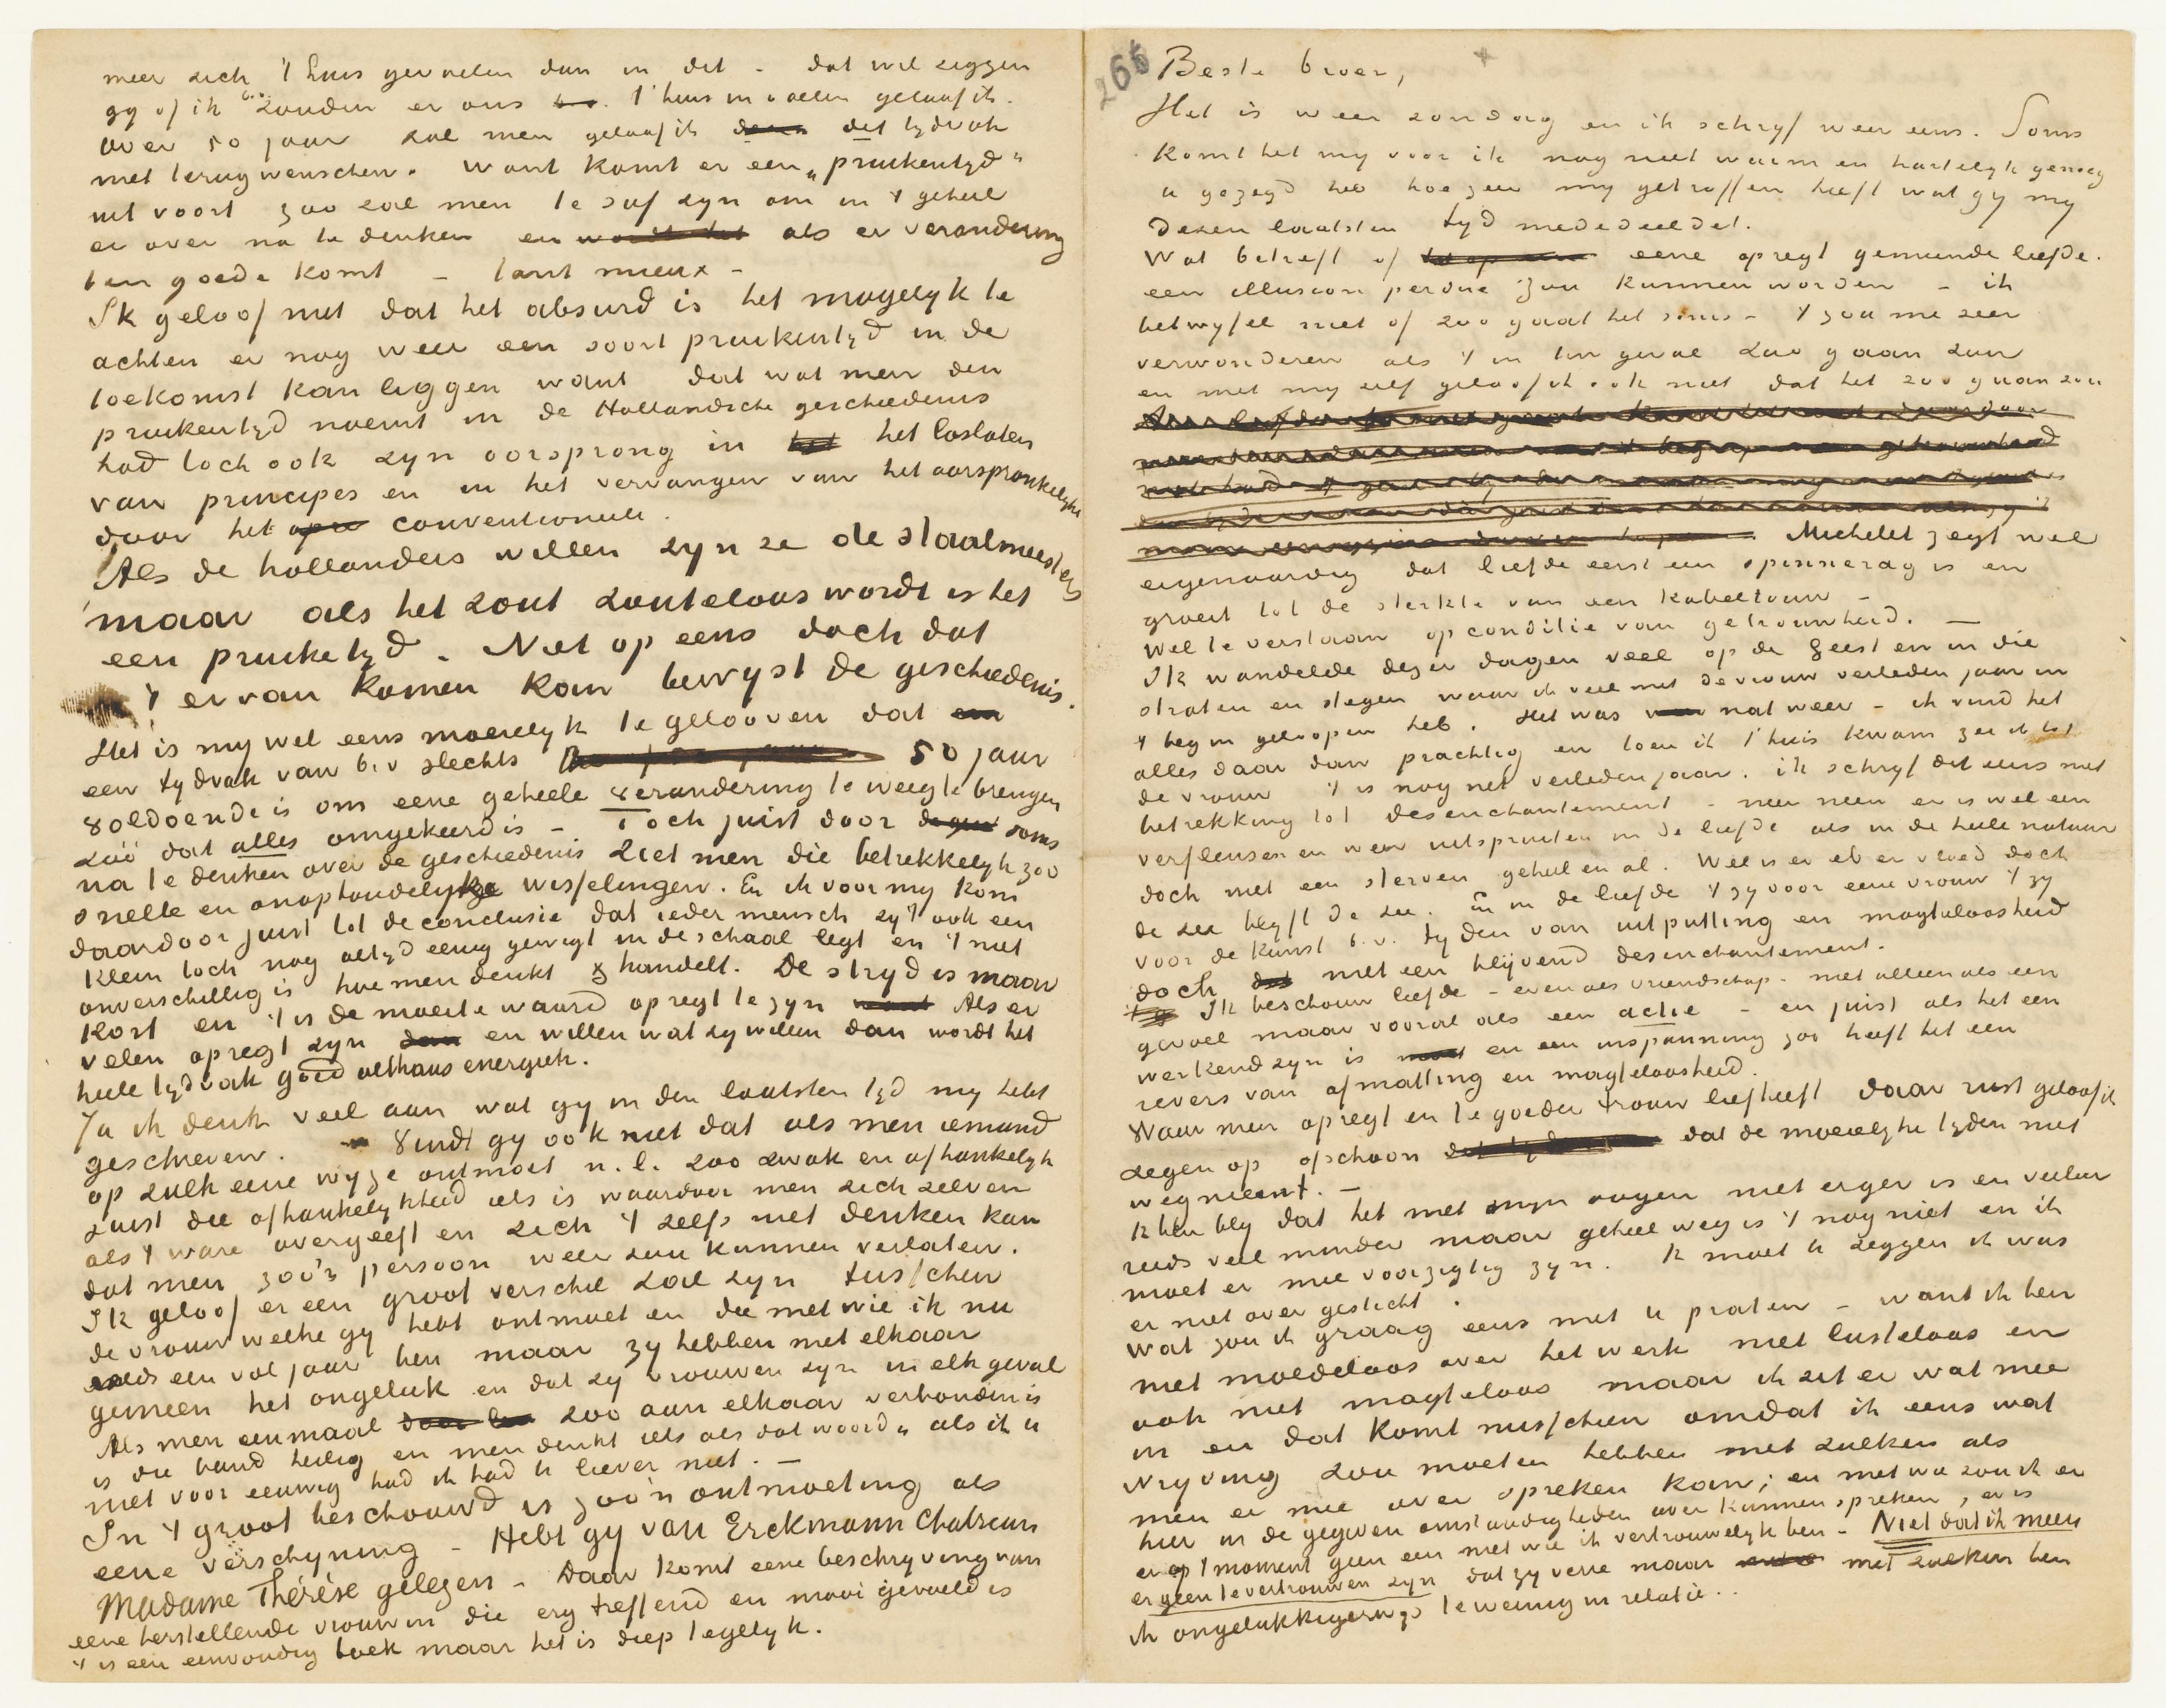 meer zich 't huis gevoelen dan in dit - dat wil zeggen
gy of ik b.v. zouden er ons t'huis in voelen geloof ik.
over 50 jaar zal men geloof ik dit tydvak
niet terug wenschen. Want komt er een „pruikentyd"
uit voort zoo zal men te suf zyn om in 't geheel
er over na te denken en als er verandering
ten goede komt - tant mieux -
Ik geloof niet dat het absurd is het mogelyk te
achten er nog weer een soort pruikentyd in de
toekomst kan liggen want dat wat men den
pruikentyd noemt in de Hollandsche geschiedenis
had toch ook zyn oorsprong in het loslaten
van principes en in het vervangen van het oorspronkelyke
door het conventioneele.
Als de hollanders willen zyn ze de staalmeesters
maar als het zout zouteloos wordt is het
een pruiketyd. Niet op eens doch dat
't ervan komen kan bewyst de geschiedenis.
Het is my wel eens moeielyk te gelooven dat
een tydvak van b.v slechts 50 jaar
voldoende is om eene geheele verandering te weeg te brengen
zóó dat alles omgekeerd is - Toch juist door soms
na te denken over de geschiedenis ziet men die betrekkelyk zoo
snelle en onophoudelyke wisselingen. En ik voor my kom
daardoor juist tot de conclusie dat ieder mensch zy't ook een
klein toch nog altyd eenig gewigt in de schaal legt en 't niet
onverschillig is hoe men denkt & handelt. De stryd is maar
kort en 't is de moeite waard opregt te zyn Als er
velen opregt zyn en willen wat zy willen dan wordt het
heele tydvak goed althans energiek.
Ja ik denk veel aan wat gy in den laatsten tyd my hebt
geschreven. Vindt gy ook niet dat als men iemand
op zulk eene wyze ontmoet n.l. zoo zwak en afhankelyk
juist die afhankelykheid iets is waardoor men zich zelven
als't ware overgeeft en zich 't zelfs niet denken kan
dat men zoo'n persoon weer zou kunnen verlaten.
Ik geloof er een groot verschil zal zyn tusschen
de vrouw welke gy hebt ontmoet en die met wie ik nu
reeds een vol jaar ben maar zy hebben met elkaar
gemeen het ongeluk en dat zy vrouwen zyn in elk geval
Als men eenmaal zoo aan elkaar verbonden is
is die band heilig en men denkt iets als dat woord „als ik u
niet voor eeuwig had ik had u liever niet. -
In 't groot beschouwd is zoo'n ontmoeting als
eene verschyning - Hebt gy van Erckmann Chatrian
Madame Thérèse gelezen - Daar komt eene beschryving van
eene herstellende vrouw in die erg treffend en mooi gevoeld is
't is een eenvoudig boek maar het is diep tegelyk.
266
Beste broer,
Het is weer zondag en ik schryf weer eens. Soms
komt het my voor ik nog niet warm en hartelyk genoeg
u gezegd heb hoe zeer my getroffen heeft wat gy my
dezen laatsten tyd mededeeldet.
Wat betreft of eene opregt gemeende liefde
een illusion perdue zou kunnen worden - ik
betwyfel niet of zoo gaat het soms - 't zou me zeer
verwonderen als 't in uw geval zoo gaan zou
en met my zelf geloof ik ook niet dat het zoo gaan zou
Michelet zegt wel
eigenaardig dat liefde eerst een spinnerag is en
groeit tot de sterkte van een kabeltouw -
Wel te verstaan op conditie van getrouwheid. -
Ik wandelde dezer dagen veel op de Geest en in die
straten en stegen waar ik veel met de vrouw verleden jaar in
't begin geloopen heb. Het was nat weer - ik vind het
alles daar dan prachtig en toen ik t'huis kwam zei ik tot
de vrouw 't is nog net verleden jaar. ik schryf dit eens met
betrekking tot desenchantement - neen neen er is wel een
verflensen en weer uitspruiten in de liefde als in de heele natuur
doch niet een sterven geheel en al. Wel is er eb en vloed doch
de zee blyft de zee. En in de liefde 't zy voor eene vrouw 't zy
voor de kunst b.v. tyden van uitputting en magteloosheid
doch niet een blijvend desenchantement.
Ik beschouw liefde - even als vriendschap - niet alleen als een
gevoel maar vooral als een actie - en juist als het een
werkend zyn is en een inspanning zoo heeft het een
revers van afmatting en magteloosheid.
Waar men opregt en te goeder trouw liefheeft daar rust geloof ik
zegen op ofschoon dat de moeielyke tyden niet
wegneemt. -
Ik ben bly dat het met myn oogen niet erger is en veeleer
reeds veel minder maar geheel weg is 't nog niet en ik
moet er mee voorzigtig zyn. Ik moet u zeggen ik was
er niet over gesticht.
Wat zou ik graag eens met u praten - want ik ben
niet moedeloos over het werk niet lusteloos en
ook niet magteloos maar ik zit er wat mee
in en dat komt misschien omdat ik eens wat
wryving zou moeten hebben met zulken als
men er mee over spreken kan; en met wie zou ik er
hier in de gegeven omstandigheden over kunnen spreken, er is
er op 't moment geen een met wie ik vertrouwelyk ben - Niet dat ik meen
er geen te vertrouwen zyn dat zy verre maar met zulken ben
ik ongelukkigerwys te weinig in relatie.